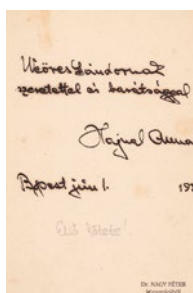 Weöres Sándornak
szeretettel és barátsággal
Hajnal Anna
Bpest jún 1.
Első kötete!
Dr. NAGY PÉTER